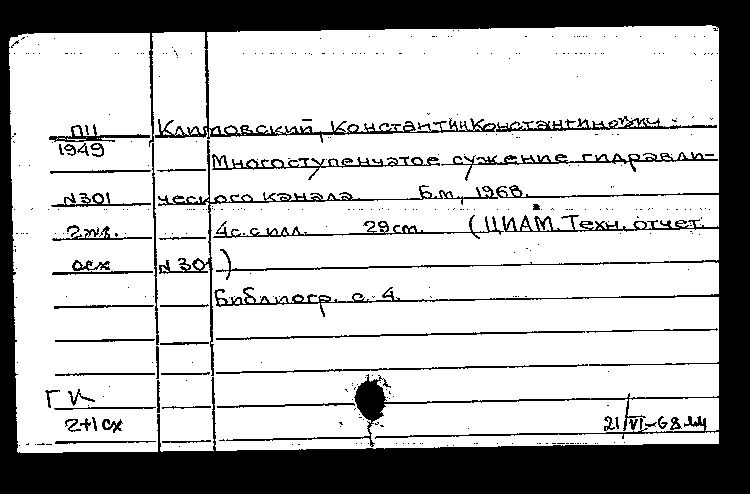 П11 Климовский, Константин Константинович.
1949 Многоступенчатое сужение гидравли-
N301 ческого канала. Б.м., 1968.
2 экз. 4 с. с илл. 29 см. (ЦИАМ. Техн. отчет.
осх N 301)
Библиогр. с. 4.
ГК
2+1 сх 21/VI-68